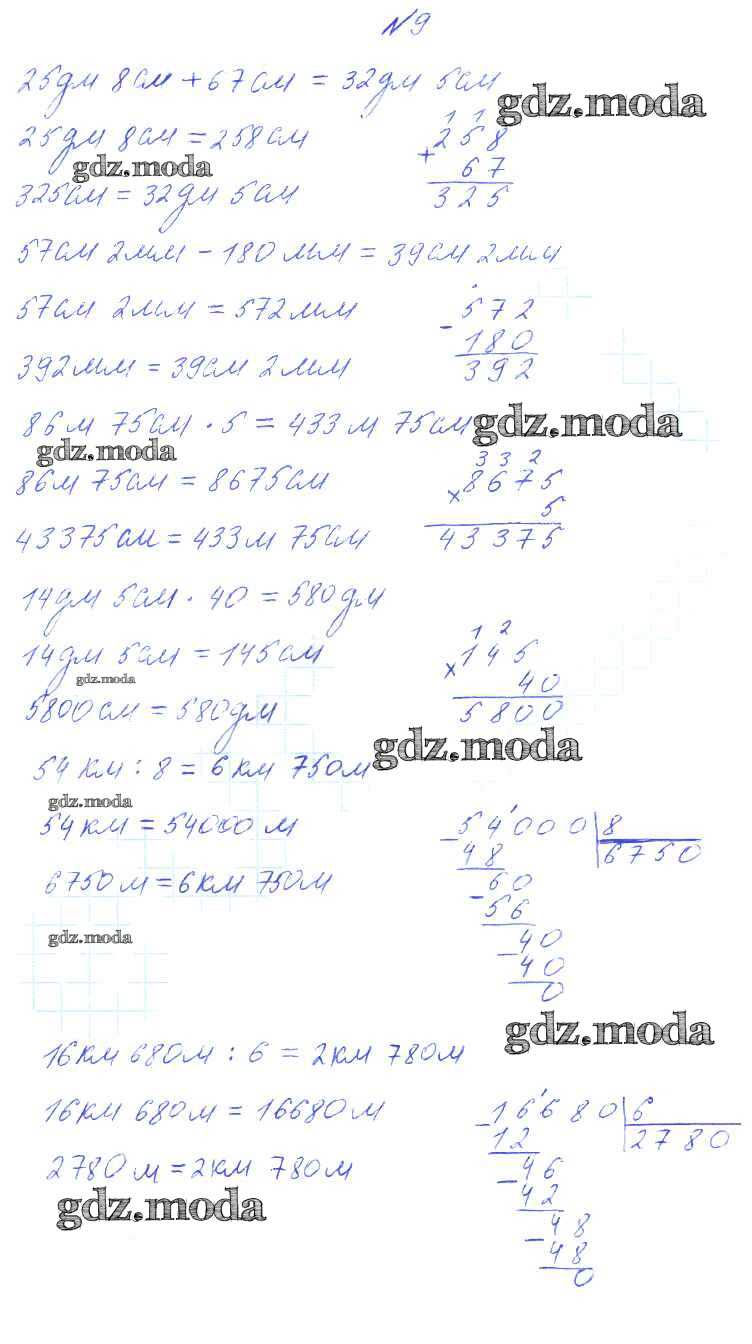 №9
25дм 8см + 67см = 32дм 5см
gdz.moda
25дм 8см = 258см
1 1
258
+ 67
325
gdz.moda
325см = 32дм 5см
57см 2мм - 180мм = 39см 2мм
57см 2мм = 572мм
- 572
180
392
392мм = 39см 2мм
86м 75см · 5 = 433м 75см
gdz.moda
gdz.moda
86м 75см = 8675см
3 3 2
× 8675
5
43375
43375см = 433м 75см
14дм 5см · 40 = 580дм
14дм 5см = 145см
1 2
× 145
40
5800
gdz.moda
5800см = 580дм
gdz.moda
54км : 8 = 6км 750м
gdz.moda
54км = 54000м
- 54000 8
48 6750
60
- 56
40
- 40
0
6750м = 6км 750м
gdz.moda
gdz.moda
16км 680м : 6 = 2км 780м
16км 680м = 16680м
- 16680 6
12 2780
46
- 42
48
- 48
0
2780м = 2км 780м
gdz.moda